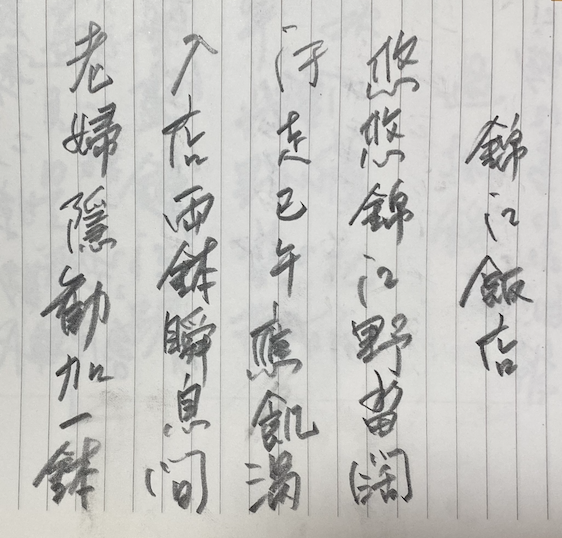 錦江飯店
悠悠錦江野畓闊
汗走巳午焦飢渴
入店兩鉢瞬息間
老婦隱勸加一鉢